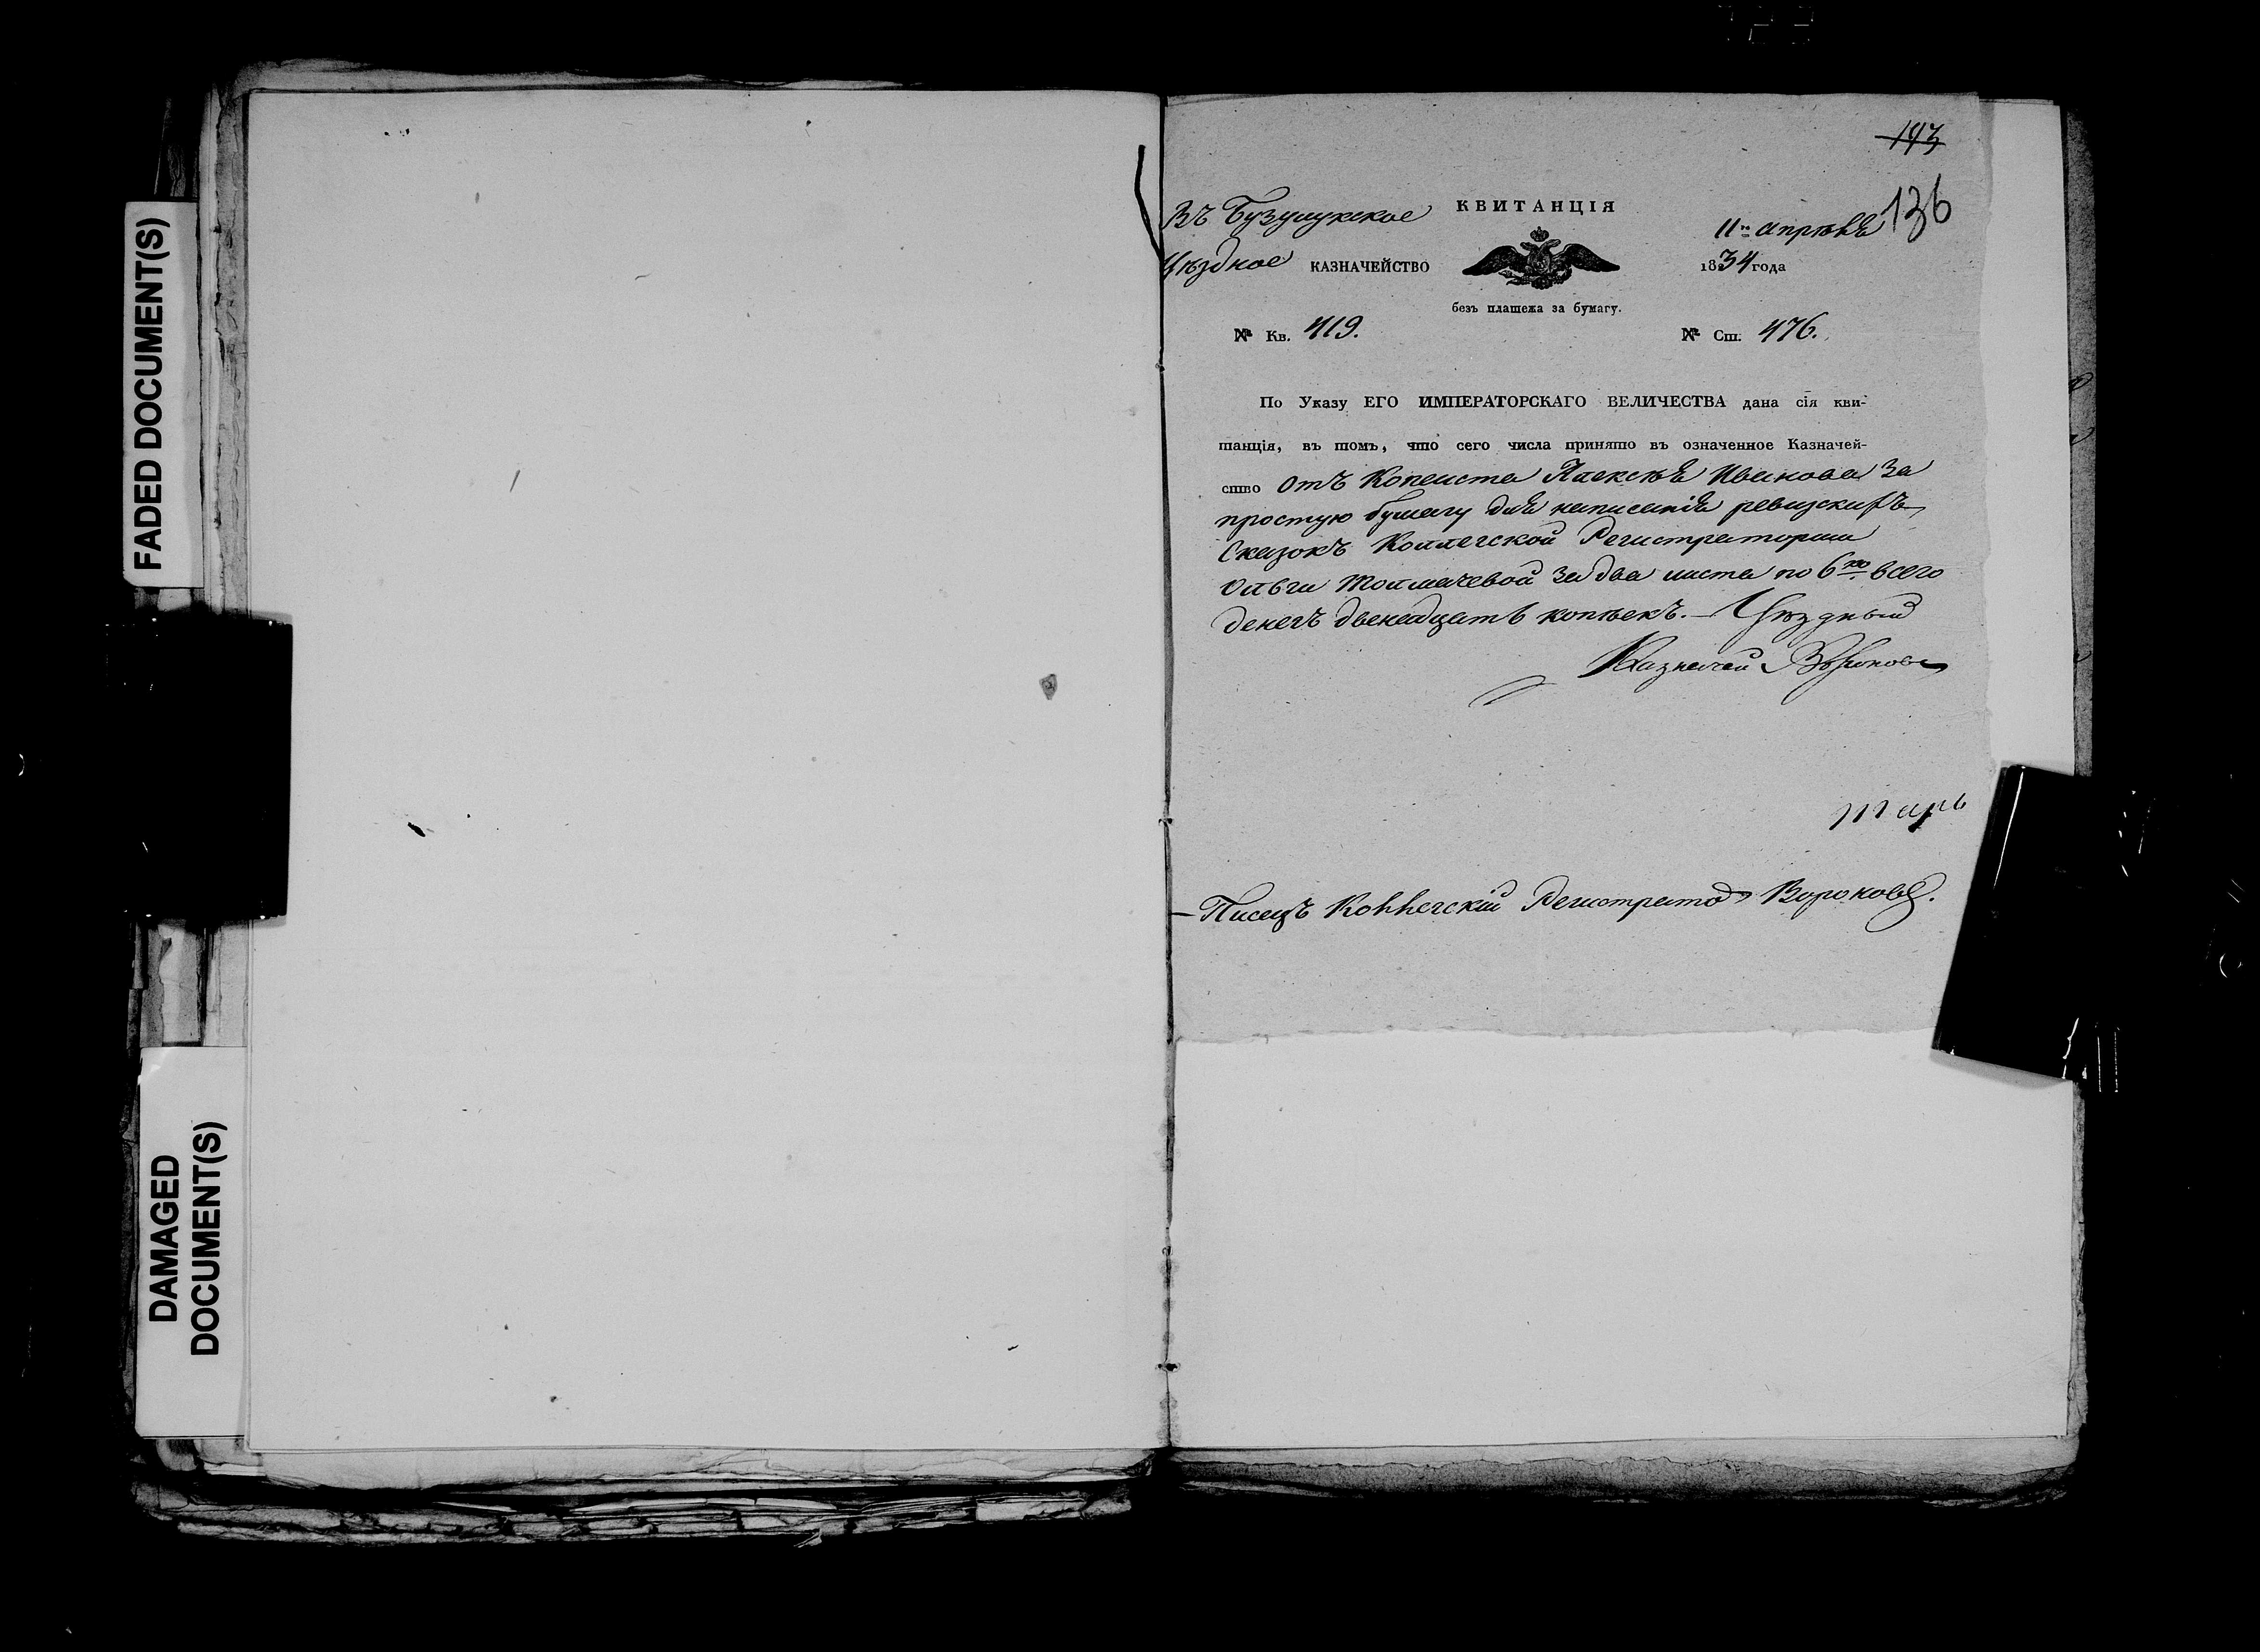 FADED DOCUMENT(S)
DAMAGED
DOCUMENT(S)
193
136
КВИТАНЦІЯ
Въ Бузулукское
Уѣздное КАЗНАЧЕЙСТВО
11го апрѣля
1834 года
безъ платежа за бумагу.
№ Кв. 419.
№ Ст. 476.
По Указу ЕГО ИМПЕРАТОРСКАГО ВЕЛИЧЕСТВА дана сія кви-
танція, въ томъ, что сего числа принято въ означенное Казначей-
ство отъ Копеиста Алексѣя Иванова за
простую бумагу для написанія ревизскихъ
Сказокъ Коллегской Регистраторши
Ольги Толмачевой за два листа по 6 ко всего
денегъ двенадцать копѣекъ. — Уѣздный
Казначей
Писецъ Коллегскій Регистраторъ Вороновъ.